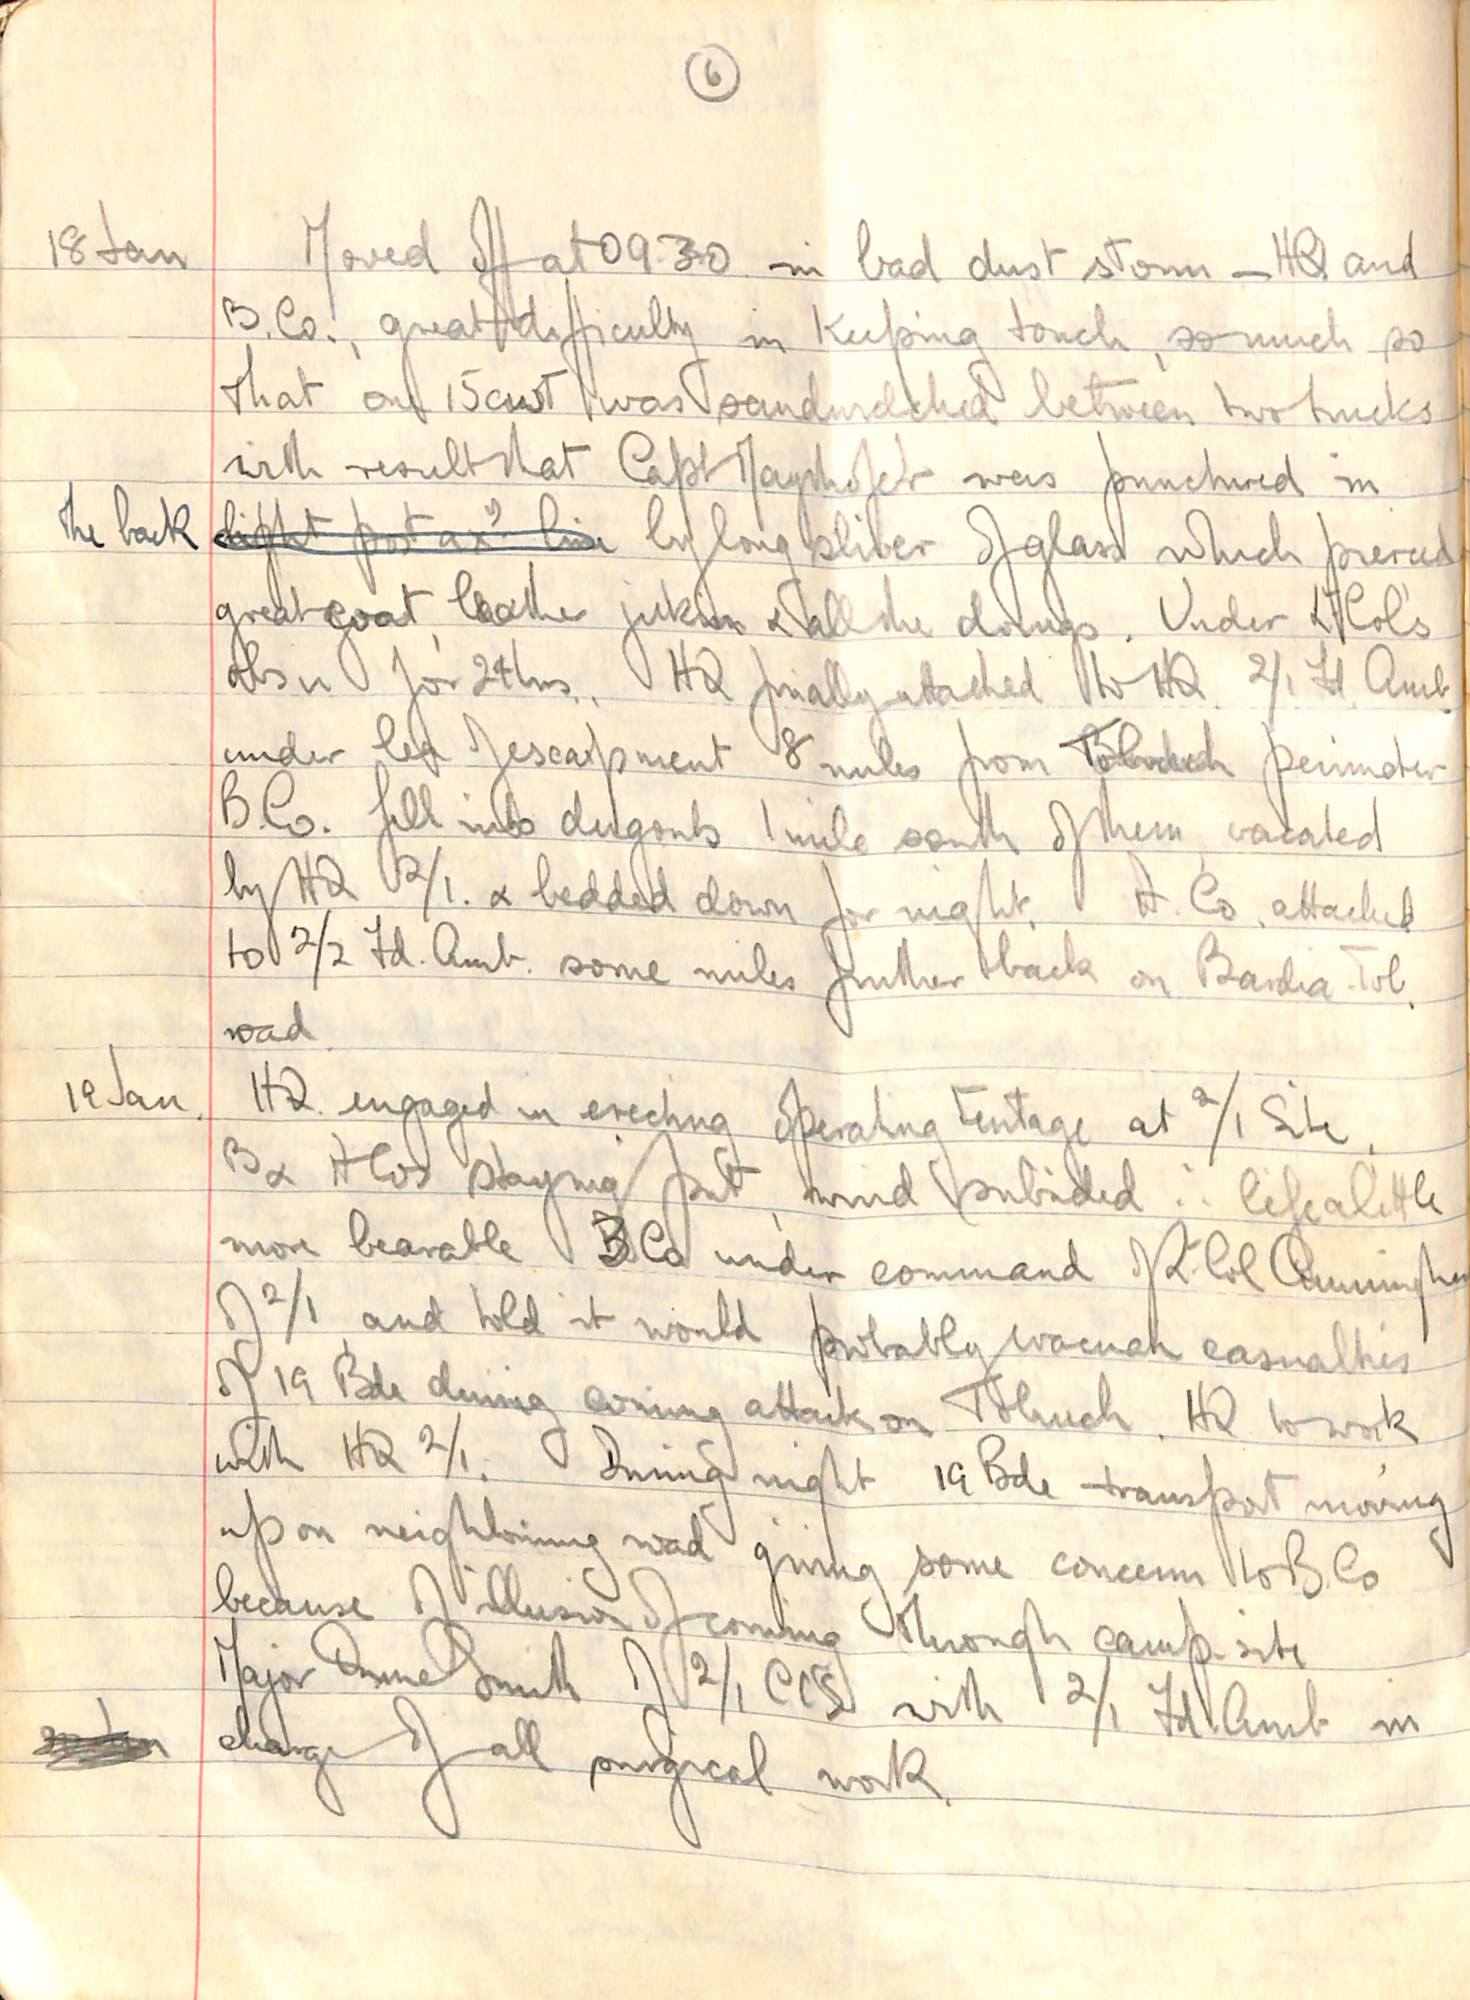 6
18 Jan Moved off at 09.30 in bad dust storm – HQ and
B.Co., great difficulty in keeping touch, so much so
that one 15cwt was sandwiched between two trucks
with result that Capt Mayrhofer was punctured in
The back by long sliver of glass which pierced
great coat, leather jerkin & all the doings. Under Lt Col's
obsn for 24hrs. HQ finally attached to HQ 2/1 Fd Amb.
under lea of escarpment 8 miles from Tobruch perimeter
B.Co. fell into dugouts 1 mile south of them, vacated
by HQ 2/1. & bedded down for night. A. Co. attached
to 2/2 Fd. Amb. some miles further back on Bardia-Tob.
road.
19 Jan. HQ. engaged in erecting operating tentage at 2/1 Site.
B & A Cos staying put, wind subsided ∴ life a little
more bearable B Co under command of Lt. Col Cunningham
of 2/1, and told it would probably evacuate casualties
of 19 Bde during coming attack on Tobruch. HQ to work
with HQ 2/1. During night 19 Bde transport moving
up on neighbouring road giving some concern to B.Co
because of illusion of coming through camp-site
Major Smith of 2/1 CCS with 2/1 Fd. Amb in
charge of all surgical work.